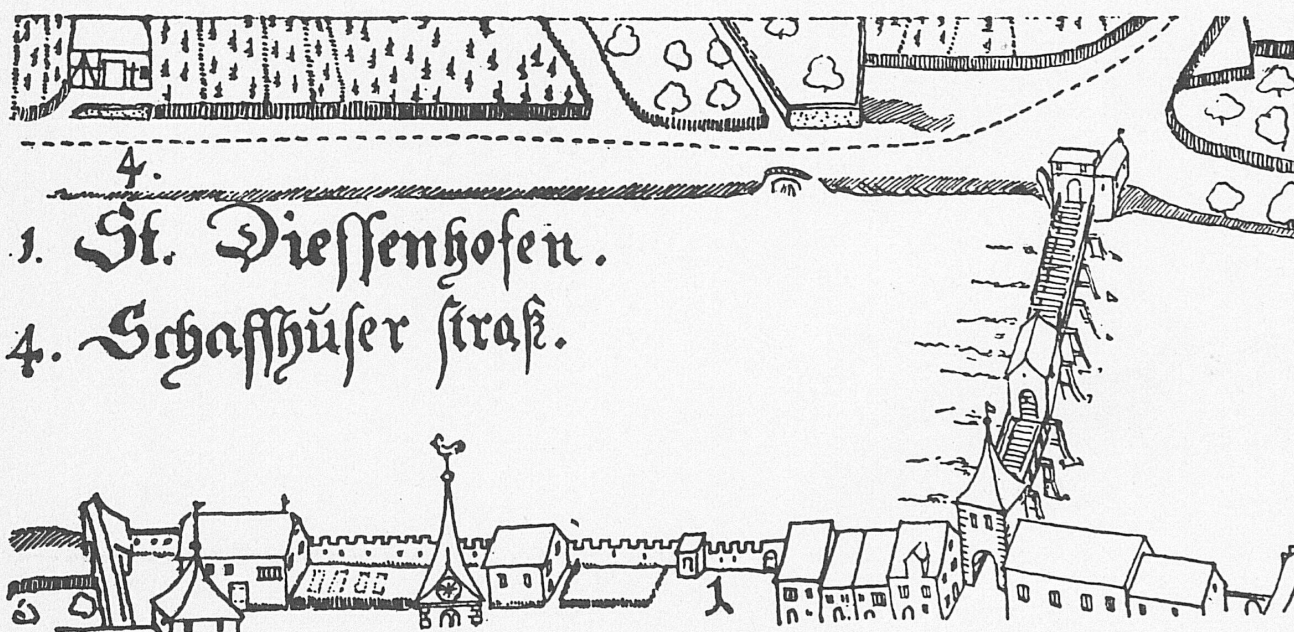 4.
1. St. Diessenhofen.
4. Schaffhüser straß.
1